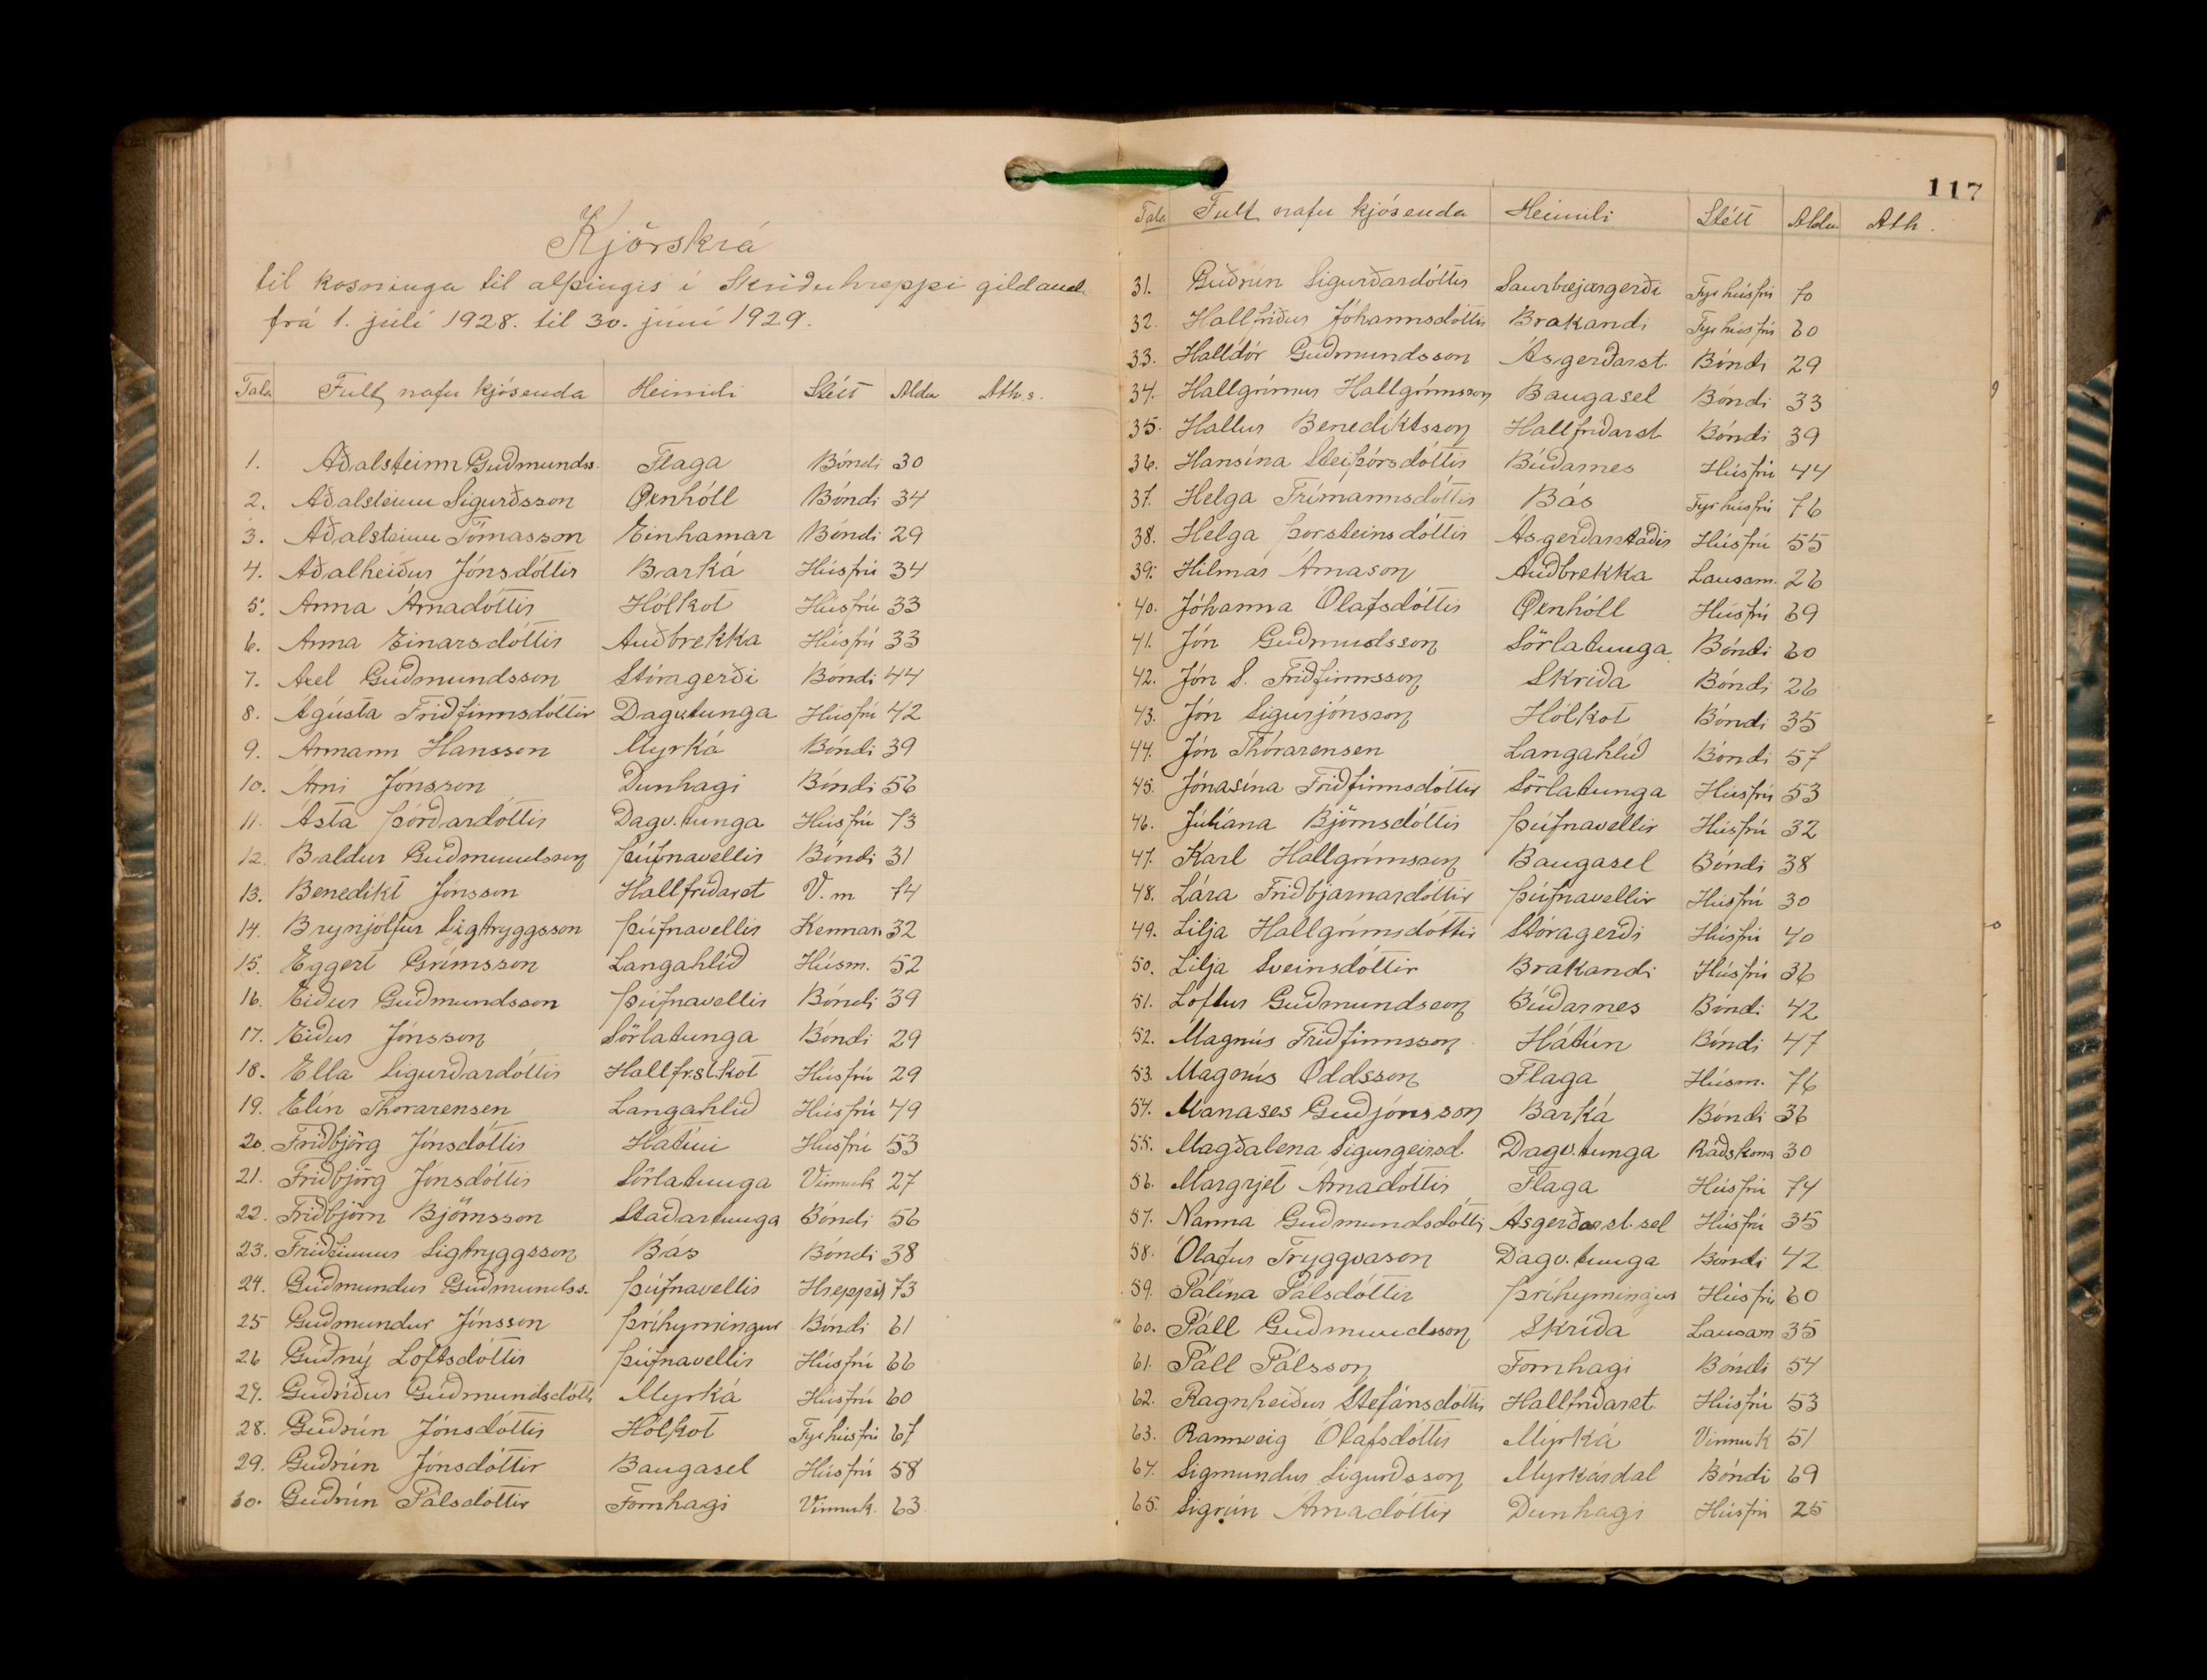 Kjörskrá
til kosninga til alþingis í Skriðuhreppi gildandi
frá 1. júlí 1928. til 30. júní 1929.
Tala Fullt nafn kjósenda Heimili Stétt Aldur Aths.
1. Aðalsteinn Guðmundss. Flaga Bóndi 30
2. Aðalsteinn Sigurðsson Öxnhóll Bóndi 34
3. Aðalsteinn Tómasson Einhamar Bóndi 29
4. Aðalheiður Jónsdóttir Barká Húsfrú 34
5. Anna Árnadóttir Hólkot Húsfrú 33
6. Anna Einarsdóttir Auðbrekka Húsfrú 33
7. Axel Guðmundsson Stóragerði Bóndi 44
8. Ágústa Friðfinnsdóttir Dagv.tunga Húsfrú 42
9. Ármann Hansson Myrká Bóndi 39
10. Árni Jónsson Dunhagi Bóndi 56
11. Ásta Þórðardóttir Dagv.tunga Húsfrú 73
12. Baldur Guðmundsson Þúfnavellir Bóndi 31
13. Benedikt Jónsson Hallfríðarst V.m 74
14. Brynjólfur Sigtryggsson Þúfnavellir Kennari 32
15. Eggert Grímsson Langahlíð Húsm. 52
16. Eiður Guðmundsson Þúfnavellir Bóndi 39
17. Eiður Jónsson Sörlatunga Bóndi 29
18. Ella Sigurðardóttir Hallfr.st.kot Húsfrú 29
19. Elín Thorarensen Langahlíð Húsfrú 49
20. Friðbjörg Jónsdóttir Hátúni Húsfrú 53
21. Friðbjörg Jónsdóttir Sörlatunga Vinnuk 27
22. Friðbjörn Björnsson Staðartunga Bóndi 56
23. Friðfinnur Sigtryggsson Bás Bóndi 38
24. Guðmundur Guðmundss. Þúfnavellir Hreppstj 73
25 Guðmundur Jónsson Þríhyrningur Bóndi 61
26 Guðný Loftsdóttir Þúfnavellir Húsfrú 66
27. Guðríður Guðmundsdótti Myrká Húsfrú 60
28. Guðrún Jónsdóttir Hólkot Fyr húsfrú 67
29. Guðrún Jónsdóttir Baugasel Húsfrú 58
30. Guðrún Pálsdóttir Fornhagi Vinnuk. 63
117
Tala Fullt nafn kjósenda Heimili Stétt Aldur Ath.
31. Guðrún Sigurðardóttir Saurbæjargerði Fyr húsfrú 70
32. Hallfríður Jóhannsdóttir Brakandi Fyr húsfrú 60
33. Halldór Guðmundsson Ásgerðarst. Bóndi 29
34. Hallgrímur Hallgrímsson Baugasel Bóndi 33
35. Hallur Benediktsson Hallfríðarst Bóndi 39
36. Hansína Steiþórsdóttir Búðarnes Húsfrú 44
37. Helga Frímannsdóttir Bás Fyr húsfrú 76
38. Helga Þorsteinsdóttir Ásgerðarstaðir Húsfrú 55
39. Hilmar Árnason Auðbrekka Lausam. 26
40. Jóhanna Ólafsdóttir Öxnhóll Húsfrú 69
41. Jón Guðmundsson Sörlatunga Bóndi 60
42. Jón S. Friðfinnsson Skriða Bóndi 26
43. Jón Sigurjónsson Hólkot Bóndi 35
44. Jón Thórarensen Langahlíð Bóndi 57
45. Jónasína Friðfinnsdóttir Sörlatunga Húsfrú 53
46. Júlíana Björnsdóttir Þúfnavellir Húsfrú 32
47. Karl Hallgrímsson Baugasel Bóndi 38
48. Lára Friðbjarnardóttir Þúfnavellir Húsfrú 30
49. Lilja Hallgrímsdóttir Stóragerði Húsfrú 40
50. Lilja Sveinsdóttir Brakandi Húsfrú 36
51. Loftur Guðmundsson Búðarnes Bóndi 42
52. Magnús Friðfinnsson Hátún Bóndi 47
53. Magnús Oddsson Flaga Húsm. 76
54. Manases Guðjónsson Barká Bóndi 36
55. Magðalena Sigurgeirsd. Dagv.tunga Ráðskona 30
56. Margrjet Árnadóttir Flaga Húsfrú 74
57. Nanna Guðmundsdótti Ásgerðarst.sel Húsfrú 35
58. Ólafur Tryggvason Dagv.tunga Bóndi 42
59. Pálína Pálsdóttir Þríhyrningur Húsfrú 60
60. Páll Guðmundsson Skriða Lausam 35
61. Páll Pálsson Fornhagi Bóndi 54
62. Ragnheiður Stefánsdóttir Hallfríðarst. Húsfrú 53
63. Rannveig Ólafsdóttir Myrká Vinnuk 51
64. Sigmundur Sigurðsson Myrkárdal Bóndi 69
65. Sigrún Árnadóttir Dunhagi Húsfrú 25